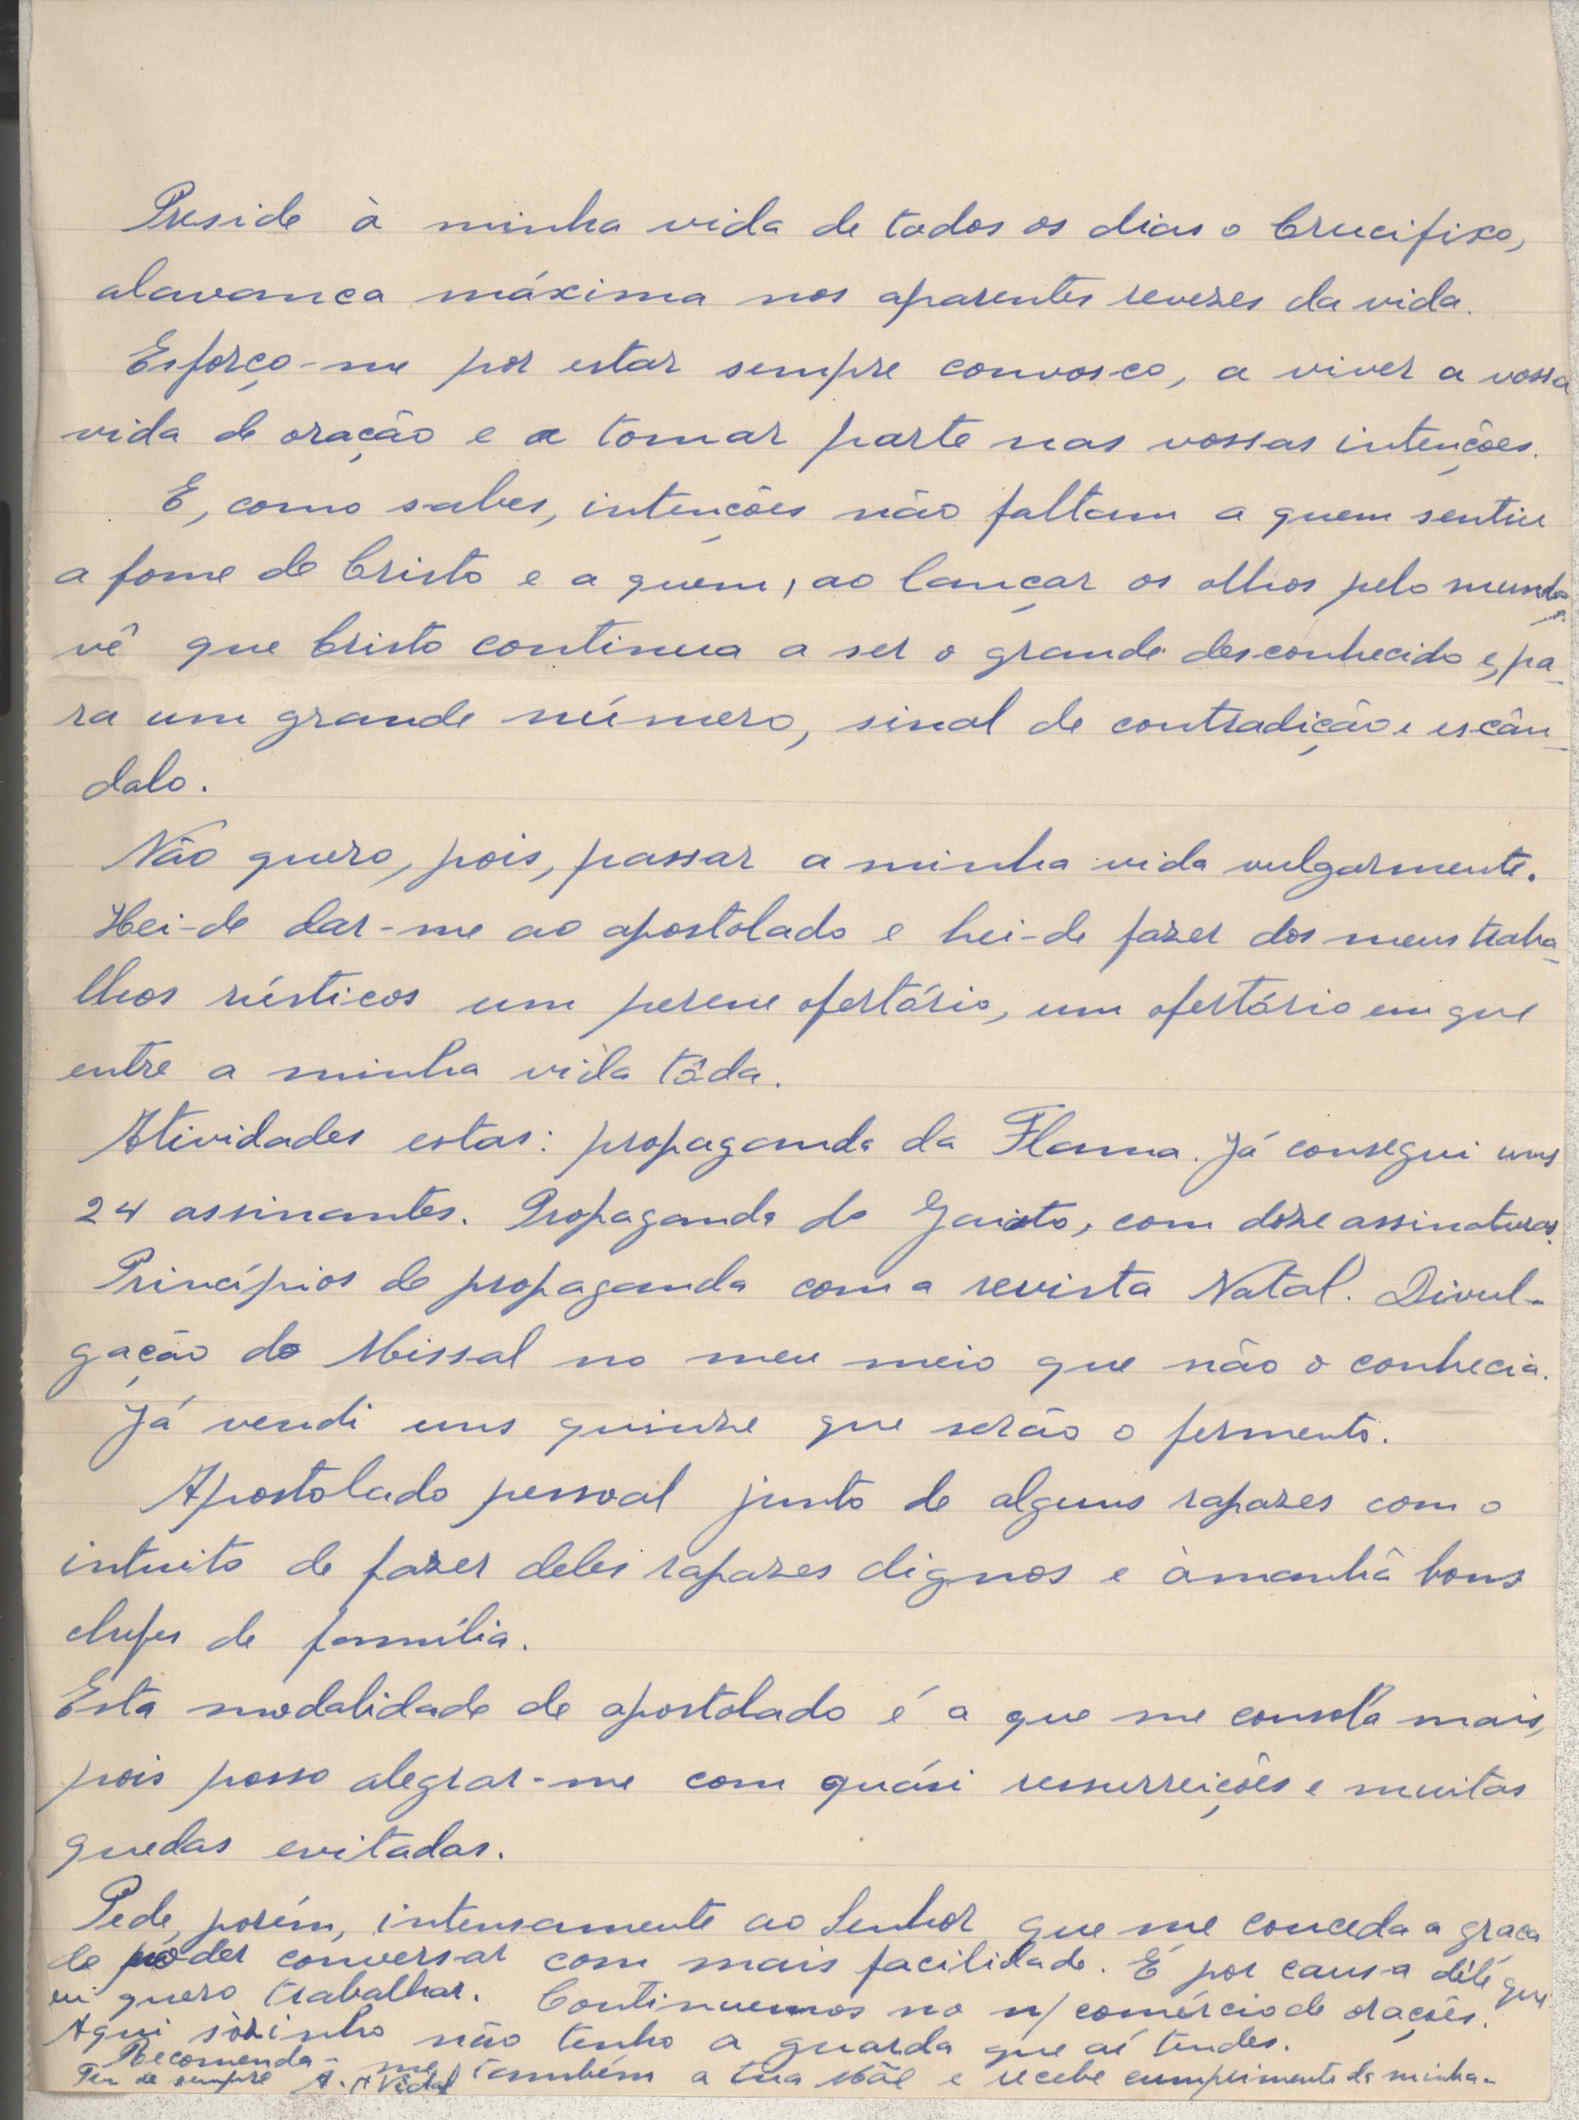 Preside à minha vida de todos os dias o Crucifixo,
alavanca máxima nos aparentes revezes da vida.
Esforço-me por estar sempre convosco, a viver a vossa
vida de oração e a tomar parte nas vossas intenções.
E, como sabes, intenções não faltam a quem sentiu
a fome de Cristo e a quem, ao lançar os olhos pelo mundo
vê que Cristo continua a ser o grande desconhecido e, pa-
ra um grande número, sinal de contradição e escân-
dalo.
Não quero, pois, passar a minha vida vulgarmente.
Hei-de dar-me ao apostolado e hei-de fazer dos meus traba-
lhos rústicos um perene ofertório, um ofertório em que
entre a minha vida tôda.
Atividades estas: propaganda da Flama. Já consegui uns
24 assinantes. Propaganda do Gaiato, com doze assinaturas.
Princípios de propaganda com a revista Natal. Divul-
gação do Missal no meu meio que não o conhecia.
Já vendi uns quinze que serão o fermento.
Apostolado pessoal junto de alguns rapazes com o
intuito de fazer deles rapazes dignos e àmanhã bons
chefes de família.
Esta modalidade de apostolado é a que me consola mais,
pois posso alegrar-me com quási ressurreições e muitas
quedas evitadas.
Pede, porém, intensamente ao Senhor que me conceda a graça
de poder conversar com mais facilidade. É por causa dêle que
eu quero trabalhar. Continuemos no n/ comércio de orações.
Aqui sòzinho não tenho a guarda que aí tendes.
Recomenda-me também a tua Mãe e recebe cumprimentos da minha.
Teu de sempre A. Vidal